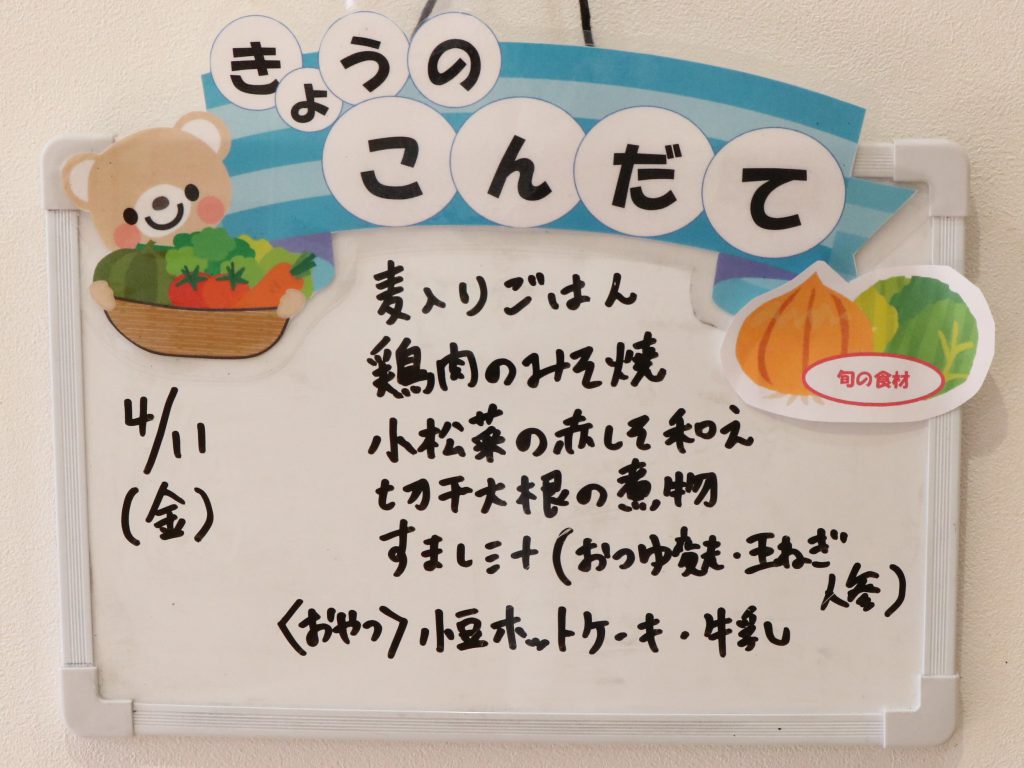 きょうの
こんだて
旬の食材
4/11
(金)
麦入りごはん
鶏肉のみそ焼
小松菜の赤しそ和え
切干大根の煮物
すまし汁(おつゆ麩・玉ねぎ
人参)
〈おやつ〉小豆ホットケーキ・牛乳